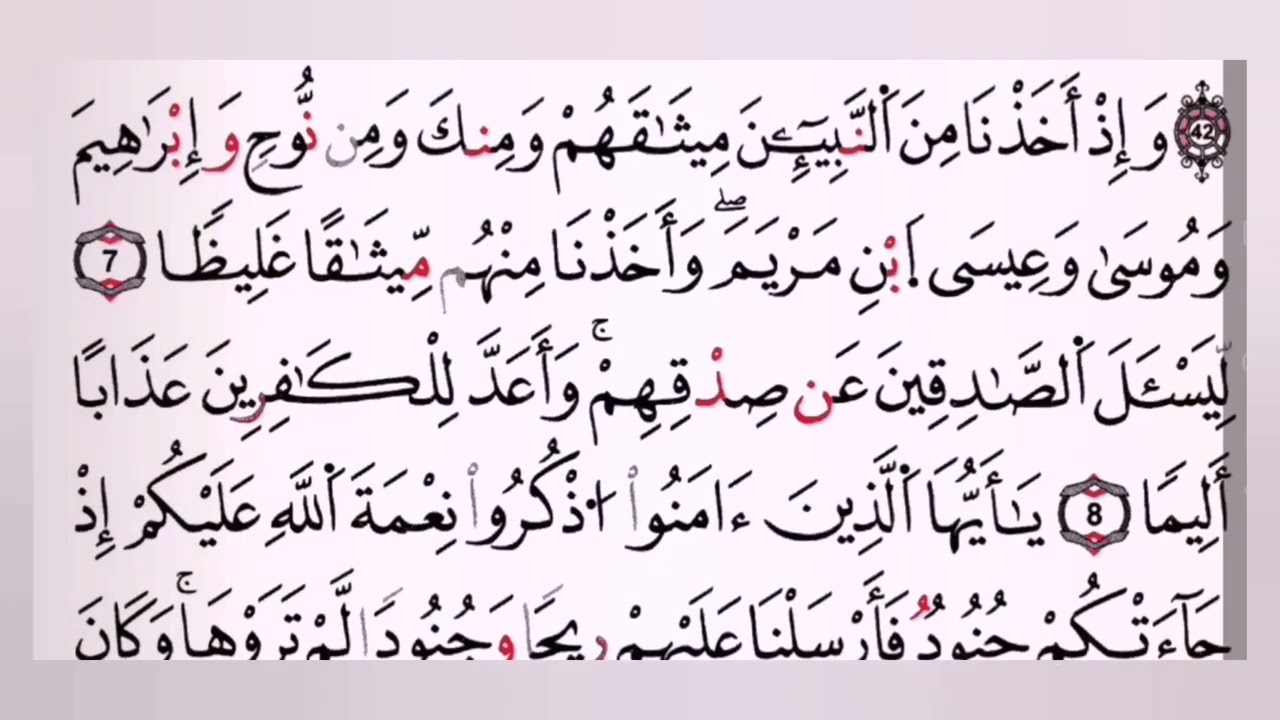 42 وَإِذْ أَخَذْنَا مِنَ ٱلنَّبِيِّـۧنَ مِيثَٰقَهُمْ وَمِنكَ وَمِن نُّوحٍ وَإِبْرَٰهِيمَ
وَمُوسَىٰ وَعِيسَى ٱبْنِ مَرْيَمَ ۖ وَأَخَذْنَا مِنْهُم مِّيثَٰقًا غَلِيظًا 7
لِّيَسْـَٔلَ ٱلصَّٰدِقِينَ عَن صِدْقِهِمْ ۚ وَأَعَدَّ لِلْكَٰفِرِينَ عَذَابًا
أَلِيمًا 8 يَٰأَيُّهَا ٱلَّذِينَ ءَامَنُوا۟ ٱذْكُرُوا۟ نِعْمَةَ ٱللَّهِ عَلَيْكُمْ إِذْ
جَآءَتْكُمْ جُنُودٌ فَأَرْسَلْنَا عَلَيْهِمْ رِيحًا وَجُنُودًا لَّمْ تَرَوْهَا ۚ وَكَانَ